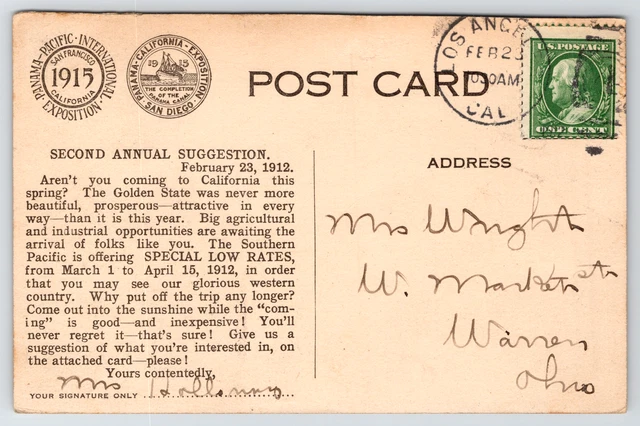 PANAMA-PACIFIC-INTERNATIONAL
SAN FRANCISCO
1915
CALIFORNIA
EXPOSITION
PANAMA-CALIFORNIA-EXPOSITION
1915
THE COMPLETION
OF THE
PANAMA CANAL
SAN DIEGO
POST CARD
LOS ANGE
FEB 23
30AM
CAL
U.S. POSTAGE
ONE CENT
SECOND ANNUAL SUGGESTION.
February 23, 1912.
Aren't you coming to California this
spring? The Golden State was never more
beautiful, prosperous—attractive in every
way—than it is this year. Big agricultural
and industrial opportunities are awaiting the
arrival of folks like you. The Southern
Pacific is offering SPECIAL LOW RATES,
from March 1 to April 15, 1912, in order
that you may see our glorious western
country. Why put off the trip any longer?
Come out into the sunshine while the "com-
ing" is good—and inexpensive! You'll
never regret it—that's sure! Give us a
suggestion of what you're interested in, on
the attached card—please!
Yours contentedly,
Mrs Holloway
YOUR SIGNATURE ONLY
ADDRESS
Mrs Wright
W. Market st
Warren
Ohio